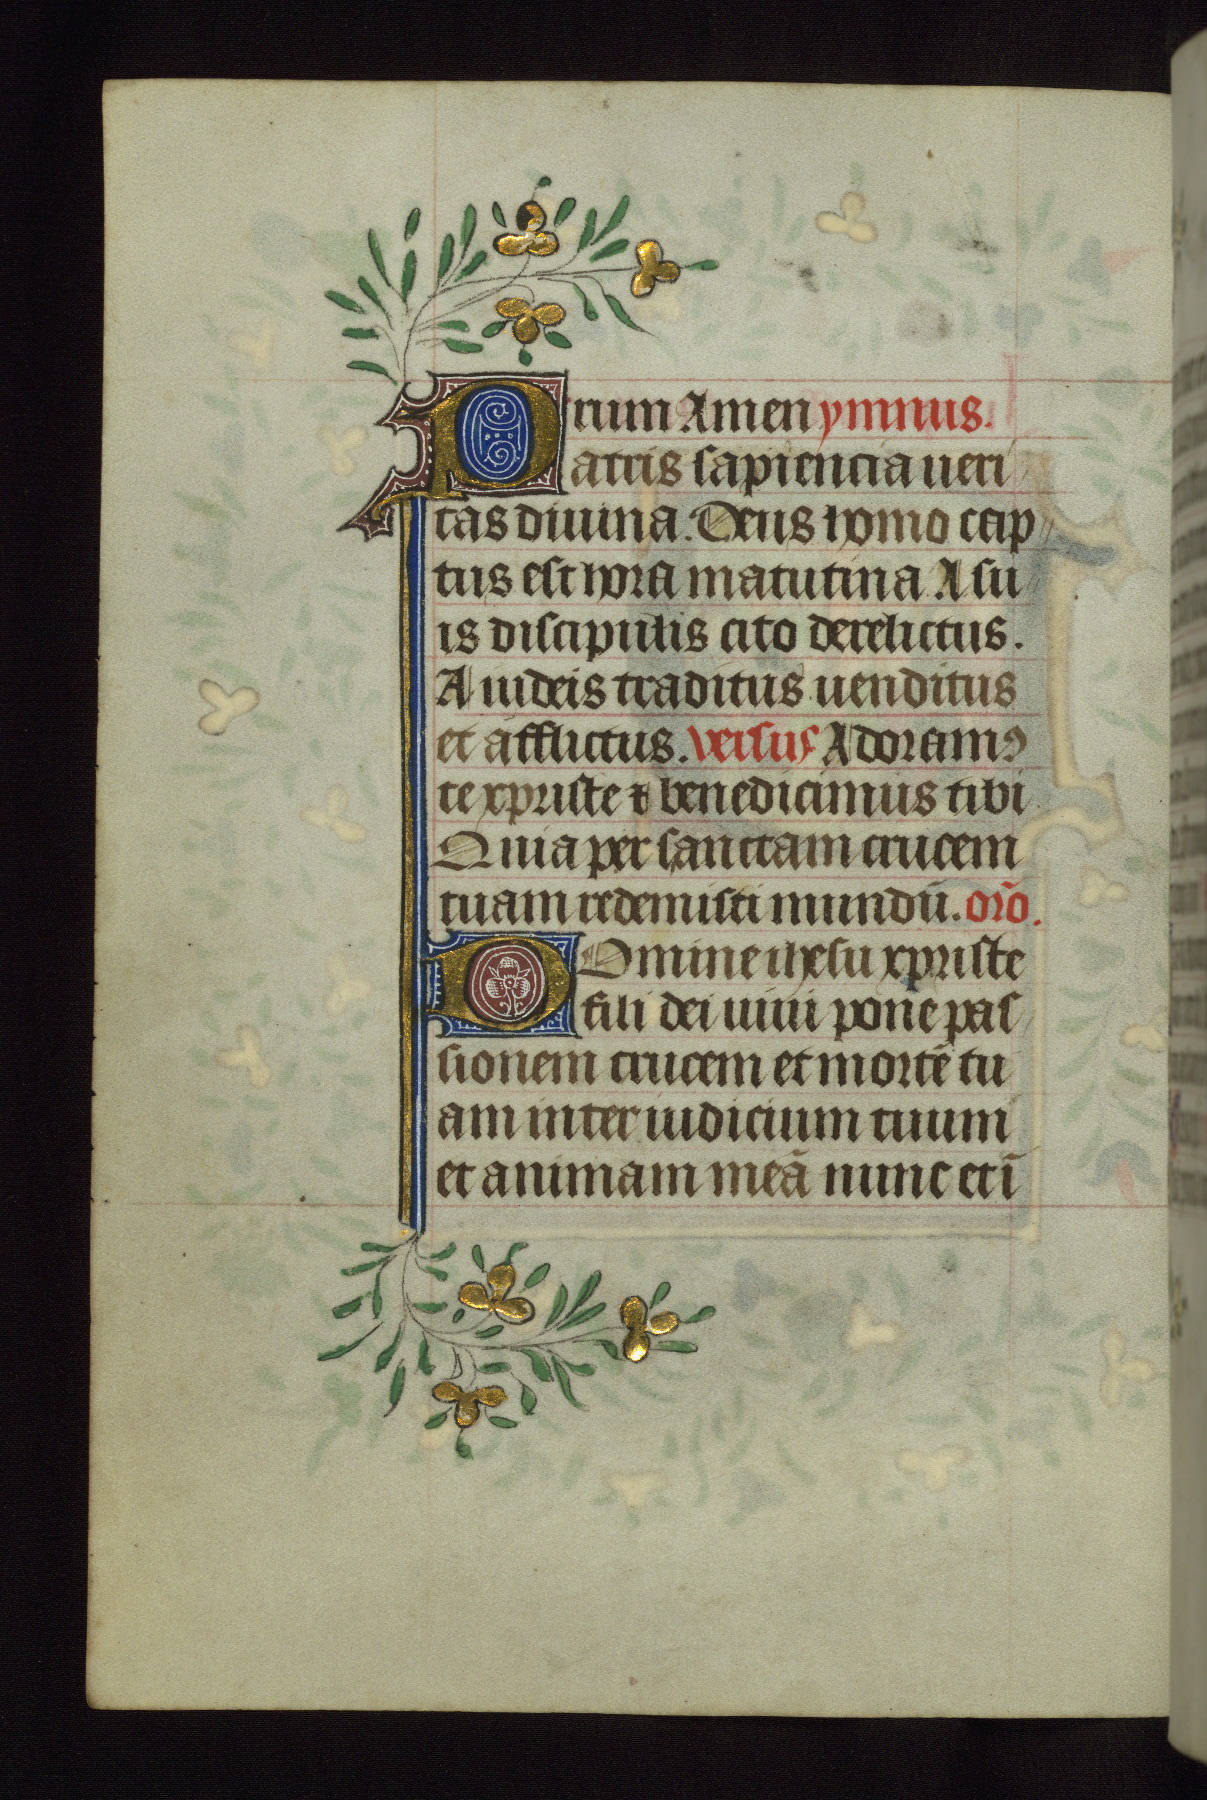 rum Amen ymnus.
Patris sapiencia ueri
tas diuina. Deus homo cap
tus est hora matutina A su
is discipulis cito derelictus.
A iudeis traditus uenditus
et afflictus. versus Adoramꝰ
te xpriste ⁊ benedicimus tibi
Quia per sanctam crucem
tuam redemisti mundū. orō.
Domine ihesu xpriste
fili dei uiui pone pas
sionem crucem et mortē tu
am inter iudicium tuum
et animam meā nunc et ī